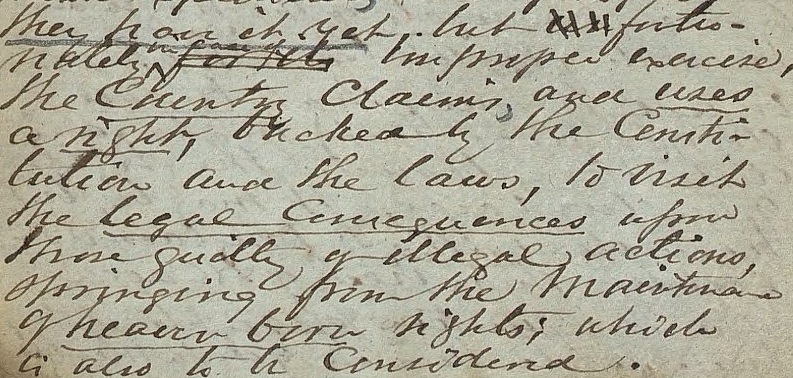 they have it yet, but fortu-
nately, in case of improper exercise,
the Country Claims, and uses
a right, backed by the Consti-
tution and the laws, to visit
the legal Consequences upon
those guilty of illegal actions,
springing from the Maintenance
of heaven born rights; which
is also to be Considered.